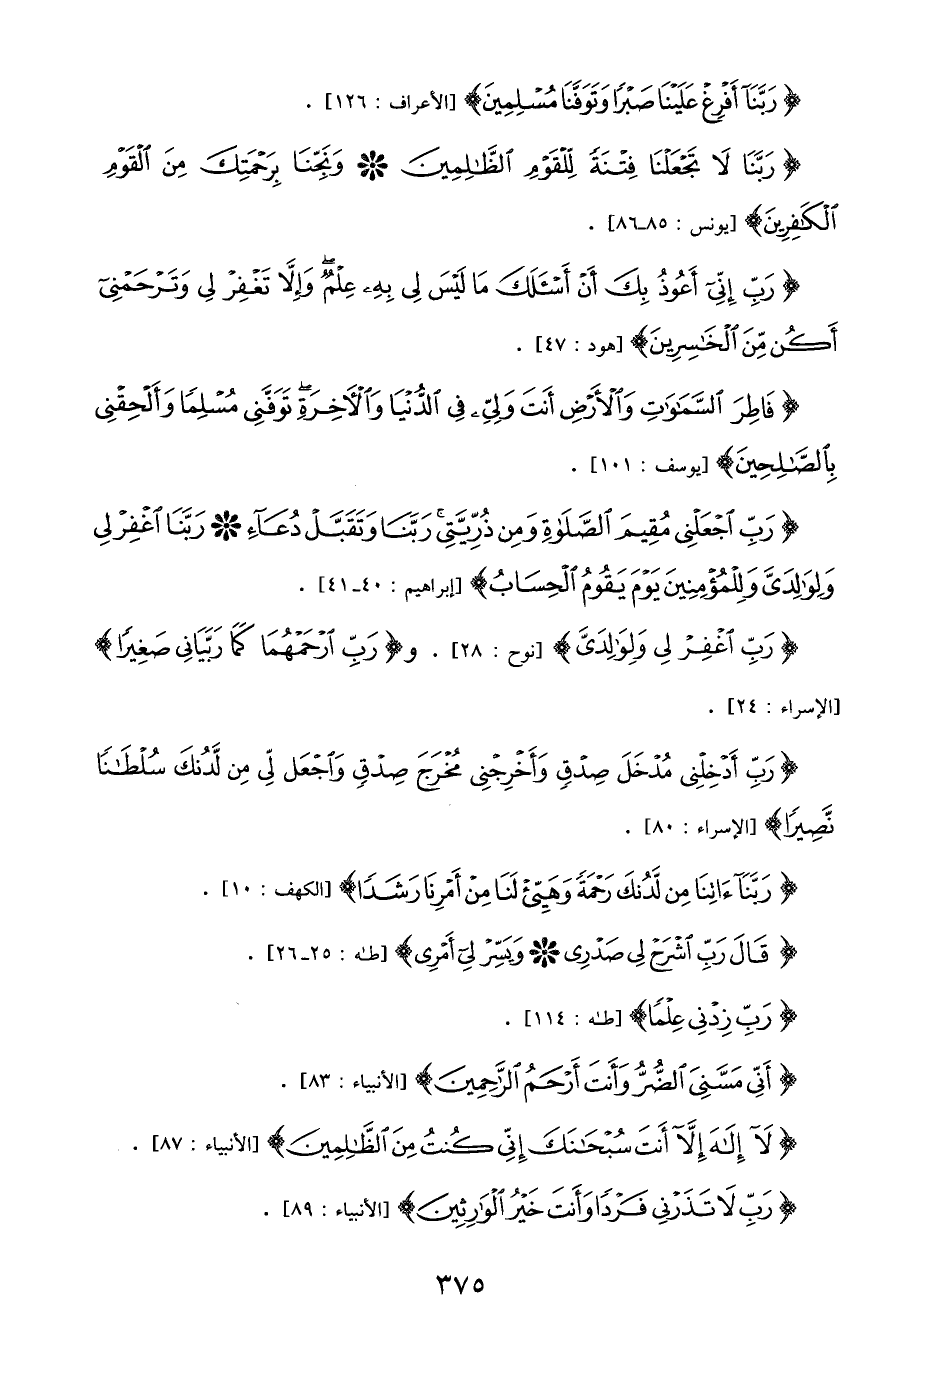 ﴿رَبَّنَآ أَفۡرِغۡ عَلَيۡنَا صَبۡرٗا وَتَوَفَّنَا مُسۡلِمِينَ﴾ [الأعراف : ١٢٦] .
﴿رَبَّنَا لَا تَجۡعَلۡنَا فِتۡنَةٗ لِّلۡقَوۡمِ ٱلظَّٰلِمِينَ ❊ وَنَجِّنَا بِرَحۡمَتِكَ مِنَ ٱلۡقَوۡمِ
ٱلۡكَٰفِرِينَ﴾ [يونس : ٨٥ـ٨٦] .
﴿رَبِّ إِنِّيٓ أَعُوذُ بِكَ أَنۡ أَسۡـَٔلَكَ مَا لَيۡسَ لِي بِهِۦ عِلۡمٞۖ وَإِلَّا تَغۡفِرۡ لِي وَتَرۡحَمۡنِيٓ
أَكُن مِّنَ ٱلۡخَٰسِرِينَ﴾ [هود : ٤٧] .
﴿فَاطِرَ ٱلسَّمَٰوَٰتِ وَٱلۡأَرۡضِ أَنتَ وَلِيِّۦ فِي ٱلدُّنۡيَا وَٱلۡأٓخِرَةِۖ تَوَفَّنِي مُسۡلِمٗا وَأَلۡحِقۡنِي
بِٱلصَّٰلِحِينَ﴾ [يوسف : ١٠١] .
﴿رَبِّ ٱجۡعَلۡنِي مُقِيمَ ٱلصَّلَوٰةِ وَمِن ذُرِّيَّتِيۚ رَبَّنَا وَتَقَبَّلۡ دُعَآءِ ❊ رَبَّنَا ٱغۡفِرۡ لِي
وَلِوَٰلِدَيَّ وَلِلۡمُؤۡمِنِينَ يَوۡمَ يَقُومُ ٱلۡحِسَابُ﴾ [إبراهيم : ٤٠ـ٤١] .
﴿رَبِّ ٱغۡفِرۡ لِي وَلِوَٰلِدَيَّ﴾ [نوح : ٢٨] . و﴿رَبِّ ٱرۡحَمۡهُمَا كَمَا رَبَّيَانِي صَغِيرٗا﴾
[الإسراء : ٢٤] .
﴿رَبِّ أَدۡخِلۡنِي مُدۡخَلَ صِدۡقٖ وَأَخۡرِجۡنِي مُخۡرَجَ صِدۡقٖ وَٱجۡعَل لِّي مِن لَّدُنكَ سُلۡطَٰنٗا
نَّصِيرٗا﴾ [الإسراء : ٨٠] .
﴿رَبَّنَآ ءَاتِنَا مِن لَّدُنكَ رَحۡمَةٗ وَهَيِّئۡ لَنَا مِنۡ أَمۡرِنَا رَشَدٗا﴾ [الكهف : ١٠] .
﴿قَالَ رَبِّ ٱشۡرَحۡ لِي صَدۡرِي ❊ وَيَسِّرۡ لِيٓ أَمۡرِي﴾ [طه : ٢٥ـ٢٦] .
﴿رَبِّ زِدۡنِي عِلۡمٗا﴾ [طه : ١١٤] .
﴿أَنِّي مَسَّنِيَ ٱلضُّرُّ وَأَنتَ أَرۡحَمُ ٱلرَّٰحِمِينَ﴾ [الأنبياء : ٨٣] .
﴿لَآ إِلَٰهَ إِلَّآ أَنتَ سُبۡحَٰنَكَ إِنِّي كُنتُ مِنَ ٱلظَّٰلِمِينَ﴾ [الأنبياء : ٨٧] .
﴿رَبِّ لَا تَذَرۡنِي فَرۡدٗا وَأَنتَ خَيۡرُ ٱلۡوَٰرِثِينَ﴾ [الأنبياء : ٨٩] .
٣٧٥